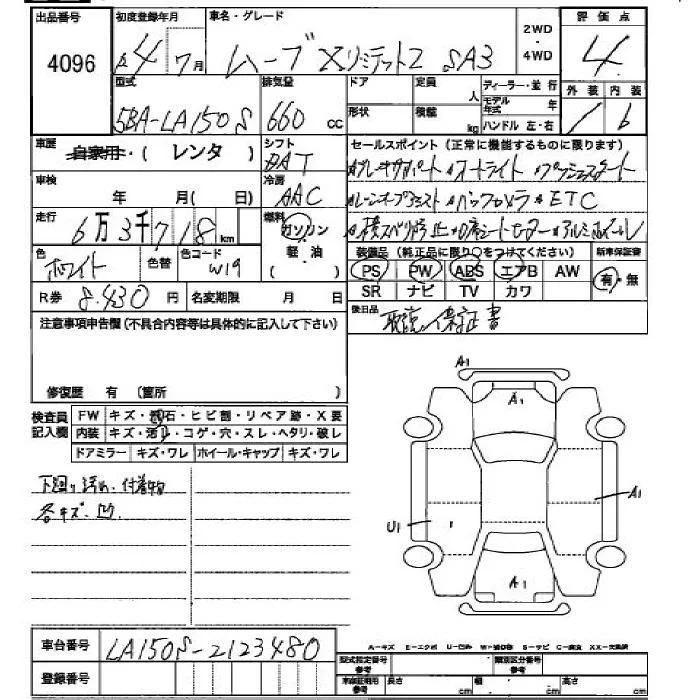 出品番号 初度登録年月 車名・グレード 2WD・4WD 評価点
4096 R4年7月 ムーブ XリミテッドⅡ SA3 4
型式 排気量 ドア 定員 人 ディーラー・並行 外装 内装
5BA-LA150S 660 cc 形状 積載 kg モデル年式 年 ハンドル 左・右 1 b
車歴 自家用・(レンタ) シフト DAT セールスポイント(正常に機能するものに限ります)
車検 年 月(日) 冷房 AAC オートライト
走行 6万3千718km 燃料 ガソリン 軽・油 ( ) ETC アルミホイール
装備品(純正品に限り○をつけてください) 新車保証書
色 ホワイト 色替 色コード W19 PS PW ABS エアB AW 有・無
SR ナビ TV カワ
R券 8.430円 名変期限 月 日
後日品 取説 保証書
注意事項申告欄(不具合内容等は具体的に記入して下さい)
修復歴 有 (箇所 )
検査員記入欄 FW キズ・飛石・ヒビ割・リペア跡・X要
内装 キズ・汚れ・コゲ・穴・スレ・ヘタリ・破レ
ドアミラー キズ・ワレ ホイール・キャップ キズ・ワレ
A1
A1
下廻り汚れ、付着物
A1
各キズ、凹
U1
A1
A-キズ E-エクボ U-凹み W-補修跡 S-サビ C-腐食 XX-交換済
車台番号 LA150S-2123480
型式指定番号 類別区分番号
登録番号 参考 長さ cm 幅 cm 高さ cm